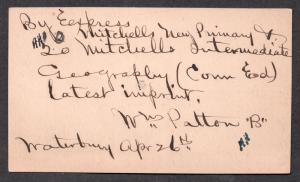 By Express
6 Mitchells New Primary &
20 Mitchells Intermediate
Geography (Conn Ed)
latest imprint,
Wm Patton "B"
Waterbury Apr 26th